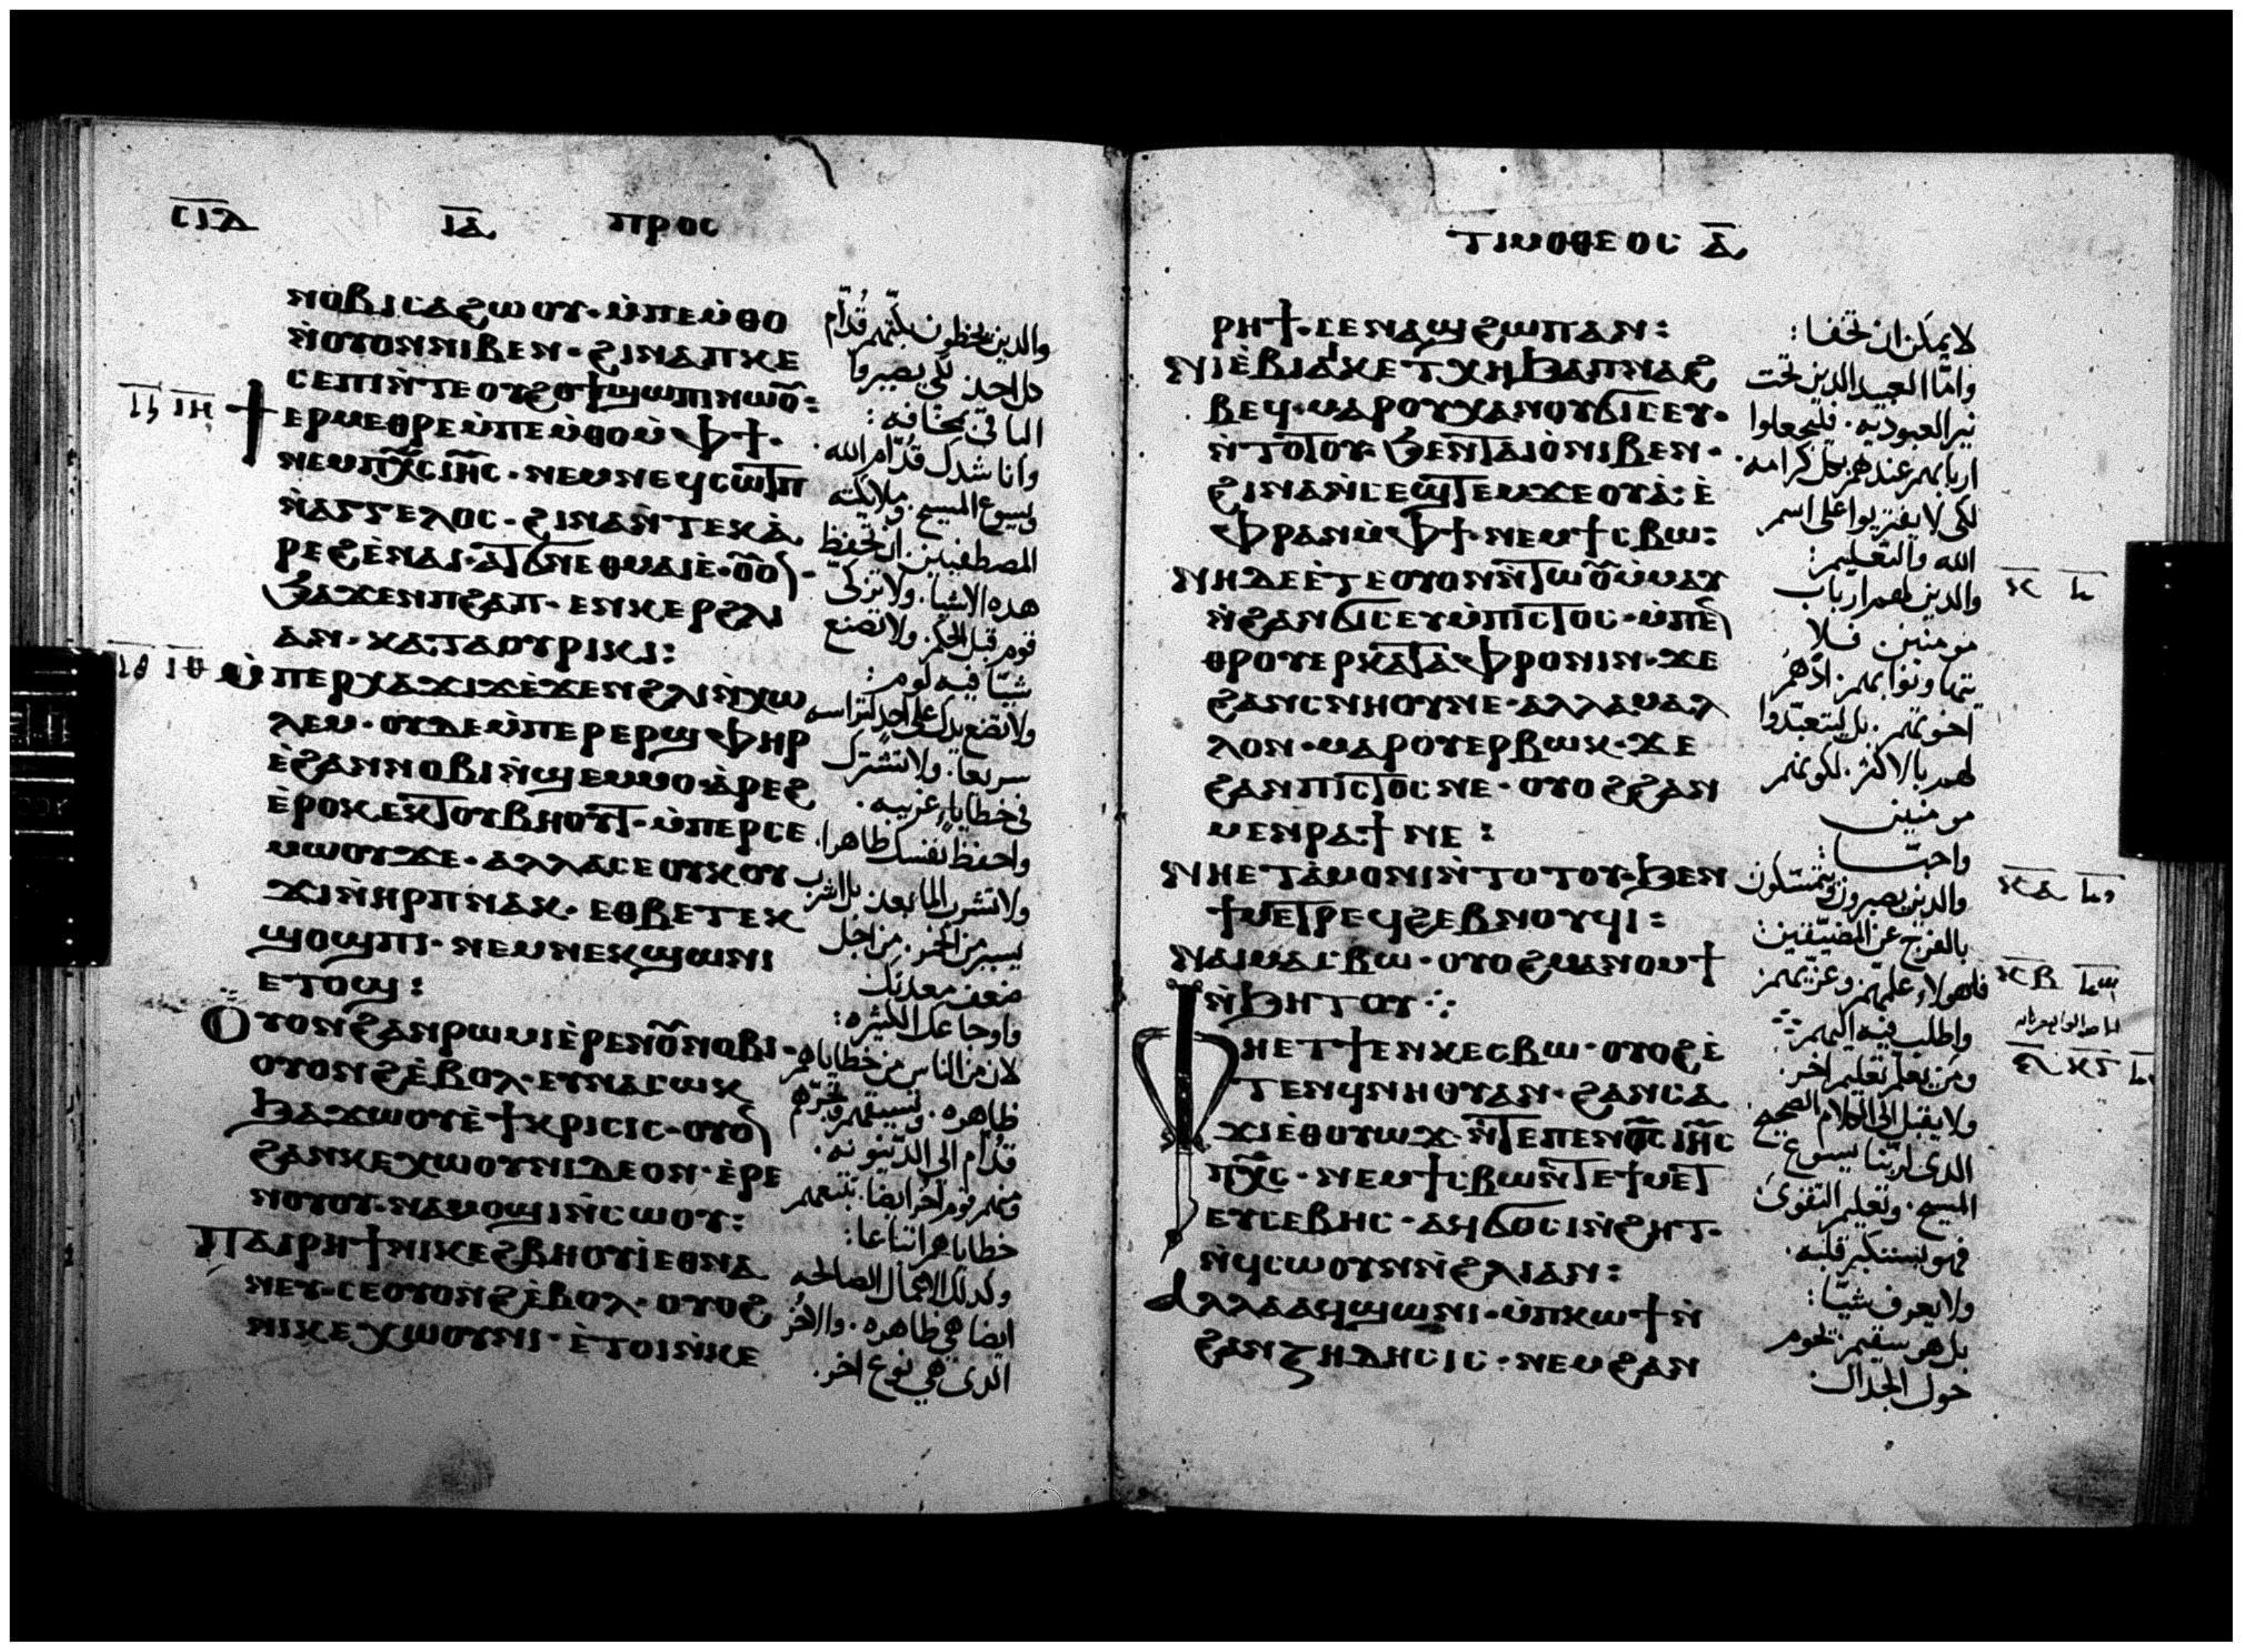 ⲥⲓⲇ ⲓⲁ ⲡⲣⲟⲥ
ⲛⲟⲃⲓ ⲥⲁϩⲱⲟⲩ · ⲙ̀ⲡⲉⲙ̀ⲑⲟ
ⲛ̀ⲟⲩⲟⲛ ⲛⲓⲃⲉⲛ · ϩⲓⲛⲁ ⲡⲕⲉ
ⲥⲉⲡⲓ ⲛ̀ⲧⲉ ⲟⲩϩⲟϯ ϣⲱⲡⲓ ⲛⲱⲟ̅:
ⲉⲣⲙⲉⲑⲣⲉ ⲙ̀ⲡⲉⲙ̀ⲑⲟ ⲙ̀ⲫϯ ·
ⲛⲉⲙ ⲡⲭ̅ⲥ ⲓⲏ̅ⲥ · ⲛⲉⲙ ⲛⲉϥⲥⲱⲧⲡ
ⲛ̀ⲁⲅⲅⲉⲗⲟⲥ · ϩⲓⲛⲁ ⲛ̀ⲧⲉⲕⲁ̀
ⲣⲉϩ ⲉ̀ⲛⲁⲓ · ⲁⲧϭⲛⲉ ⲑⲙⲁⲓⲉ · ⲟ̅ⲟ̅
ϧⲁϫⲉⲛ ⲡϩⲁⲡ · ⲉⲛⲕⲉⲣ ϩⲗⲓ
ⲁⲛ · ⲕⲁⲧⲁ ⲟⲩⲣⲓⲕⲓ:
ⲙ̀ⲡⲉⲣⲭⲁ ϫⲓϫ ⲉ̀ϫⲉⲛ ϩⲗⲓ ⲛ̀ⲭⲱ
ⲗⲉⲙ · ⲟⲩⲇⲉ ⲙ̀ⲡⲉⲣⲉⲣϣⲫⲏⲣ
ⲉ̀ϩⲁⲛⲛⲟⲃⲓ ⲛ̀ϣⲉⲙⲙⲟ · ⲁ̀ⲣⲉϩ
ⲉ̀ⲣⲟⲕ ⲉⲕⲧⲟⲩⲃⲏⲟⲩⲧ · ⲙ̀ⲡⲉⲣⲥⲉ
ⲙⲱⲟⲩ ϫⲉ · ⲁⲗⲗⲁ ⲥⲉ ⲟⲩⲕⲟⲩ
ϫⲓ ⲛ̀ⲏⲣⲡ ⲛⲁⲕ · ⲉⲑⲃⲉ ⲧⲉⲕ
ϣⲟϣⲡⲓ · ⲛⲉⲙ ⲛⲉⲕϣⲱⲛⲓ
ⲉⲧⲟϣ:
ⲟⲩⲟⲛ ϩⲁⲛⲣⲱⲙⲓ ⲉ̀ⲣⲉ ⲛⲟ̅ⲛⲟⲃⲓ ·
ⲟⲩⲟⲛϩ ⲉ̀ⲃⲟⲗ · ⲉⲩⲛⲁⲥⲱⲕ
ϧⲁϫⲱⲟⲩ ⲉ̀ϯⲕⲣⲓⲥⲓⲥ · ⲟⲩⲟ
ϩⲁⲛⲕⲉⲭⲱⲟⲩⲛⲓ ⲇⲉ ⲟⲛ · ⲉ̀ⲣⲉ
ⲛⲟⲩⲟⲩ · ⲛⲁⲙⲟϣⲓ ⲛ̀ⲥⲱⲟⲩ:
ⲡⲁⲓⲣⲏϯ ⲛⲓⲕⲉϩⲃⲏⲟⲩⲓ̀ ⲉⲑⲛⲁ
ⲛⲉⲩ · ⲥⲉⲟⲩⲟⲛϩ ⲉ̀ⲃⲟⲗ · ⲟⲩⲟϩ
ⲛⲓⲕⲉⲭⲱⲟⲩⲛⲓ · ⲉ̀ⲧⲟⲓ ⲛ̀ⲕⲉ
ⲓⲏ
ⲓⲑ ⲓⲑ
والدين يخطون بكتهم قدام
كل احد لكي يصيروا
الباقين مخافه:
وانا شدك قدام الله.
ويسوع المسيح. وملايكته
المصطفيين. ان تحفظ
هده الاشيا. ولا تزكى
قوم قبل الحكم. ولا تصنع
شيا فيه لوم:
ولا تضع يدك على احد
سريعا. ولا تشترك
في خطايا غريبه.
واحفظ نفسك طاهرا.
ولا تشرب الما بعد. بل اشرب
يسير من الخمر. من اجل
ضعف معدتك
واوجاعك الكثيره:
لان من الناس من خطاياهم
ظاهره.
قدام الى الدينونه.
ومنهم قوم اخر ايضا. تتبعهم
خطاياهم اتباعا:
وكدلك الاعمال الصالحه
ايضا هي ظاهره. والاخر
الدى هي نوع اخر.
ⲧⲓⲙⲟⲑⲉⲟⲥ ⲁ̅
ⲣⲏϯ · ⲥⲉⲛⲁϣϩⲱⲡ ⲁⲛ:
ⲛⲓⲉ̀ⲃⲓⲁⲓⲕ ⲉⲧⲭⲏ ϧⲁ ⲡⲛⲁϩ
ⲃⲉϥ · ⲙⲁⲣⲟⲩⲭⲁ ⲛⲟⲩϭⲓⲥⲉⲩ ·
ⲛ̀ⲧⲟⲧⲟⲩ ϧⲉⲛ ⲧⲁⲓⲟ̀ ⲛⲓⲃⲉⲛ ·
ϩⲓⲛⲁ ⲛ̀ⲥⲉϣⲧⲉⲙϫⲉⲟⲩⲁ̀: ⲉ̀
ⲫⲣⲁⲛ ⲙ̀ⲫϯ · ⲛⲉⲙ ϯⲥⲃⲱ:
ⲛⲏ ⲇⲉ ⲉ̀ⲧⲉ ⲟⲩⲟⲛ ⲛ̀ⲧⲱⲟ̅ ⲙ̀ⲙⲁⲩ
ⲛ̀ϩⲁⲛϭⲓⲥⲉⲩ ⲙ̀ⲡⲓⲥⲧⲟⲥ · ⲙ̀ⲡⲉ
ⲑⲣⲟⲩⲉⲣⲕⲁⲧⲁⲫⲣⲟⲛⲓⲛ · ϫⲉ
ϩⲁⲛⲥⲛⲏⲟⲩ ⲛⲉ · ⲁⲗⲗⲁ ⲙⲁⲗ
ⲗⲟⲛ · ⲙⲁⲣⲟⲩⲉⲣⲃⲱⲕ · ϫⲉ
ϩⲁⲛⲡⲓⲥⲧⲟⲥ ⲛⲉ · ⲟⲩⲟϩ ϩⲁⲛ
ⲙⲉⲛⲣⲁϯ ⲛⲉ:
ⲛⲏ ⲉⲧⲁ̀ⲙⲟⲛⲓ ⲛ̀ⲧⲟⲧⲟⲩ · ϧⲉⲛ
ϯⲙⲉⲧⲣⲉϥϩⲉⲃⲛⲟⲩϥⲓ:
ⲛⲁⲓ ⲙⲁⲥⲃⲱ · ⲟⲩⲟϩ ⲙⲁⲛⲟⲙϯ
ⲛ̀ϧⲏⲧⲟⲩ ⁘
ⲫⲏ ⲉⲧϯ ⲉⲛⲕⲉⲥⲃⲱ · ⲟⲩⲟϩ ⲉ̀
ⲧⲉⲛϥⲛⲏⲟⲩ ⲁⲛ · ϩⲁⲛⲥⲁ
ϫⲓ ⲉ̀ⲑⲟⲩⲱϫ · ⲛ̀ⲧⲉ ⲡⲉⲛⲟ̅ⲥ ⲓⲏ̅ⲥ
ⲡⲭ̅ⲥ · ⲛⲉⲙ ϯⲥⲃⲱ ⲛ̀ⲧⲉ ϯⲙⲉⲧ
ⲉⲩⲥⲉⲃⲏⲥ · ⲁϥϭⲟⲥⲓ ⲛ̀ϩⲏⲧ ·
ⲛ̀ϥⲥⲱⲟⲩⲛ ⲛ̀ϩⲗⲓ ⲁⲛ:
ⲁⲗⲗⲁ ⲁϥϣⲱⲛⲓ · ⲙ̀ⲡⲕⲱϯ ⲛ̀
ϩⲁⲛⲍⲏⲇⲏⲥⲓⲥ · ⲛⲉⲙ ϩⲁⲛ
لا يمكن ان تخفا:
واما العبيد الدين تحت
نير العبوديه. فليجعلوا
اربابهم عندهم بكل كرامه.
لكي لا يفتريوا على اسم
الله والتعليم:
والدين لهم ارباب
مومنين فلا
يتهاونوا بهم. ادهم
اخوتهم. بل ليتعبدوا
لهم بالاكثر. لكونهم
مومنين
واحبا:
والدين يصبرون ويتمسكون
فلهولاء علمهم وعزيهم
ومن يعلم تعليم اخر.
ولا يقبل الى الكلام الصحيح
الدى لربنا يسوع
المسيح. وتعليم التقوى
فهو يستكبر قلبه.
ولا يعرف شيا:
بل هو سقيم تحوم
حول الجدال
ⲕ
ⲕⲁ
ⲕⲃ